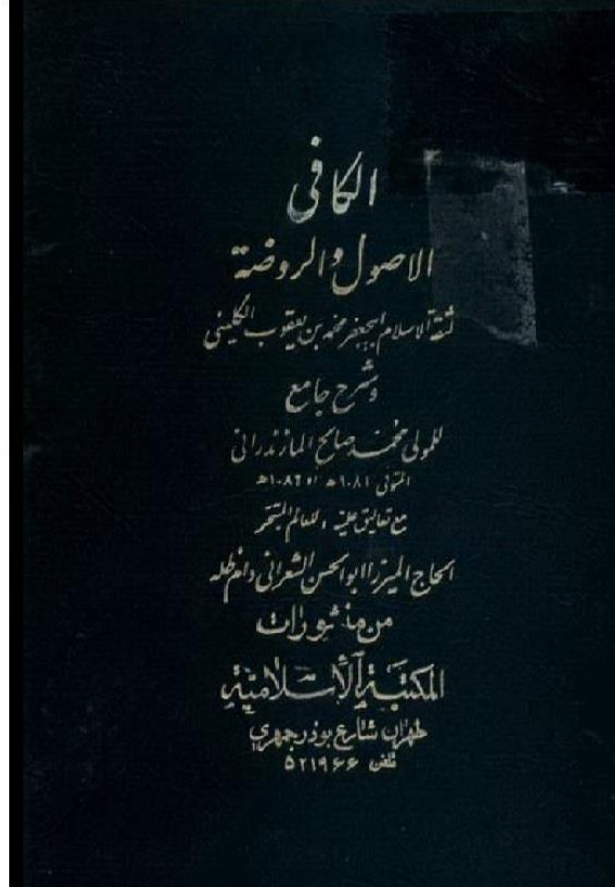 الكافي
الاصول والروضة
لثقة الاسلام ابيجعفر محمد بن يعقوب الكليني
وشرح جامع
للمولى محمد صالح المازندراني
المتوفى ١٠٨١ ه او ١٠٨٦ ه
مع تعاليق علمية للعالم المتبحر
الحاج الميرزا ابوالحسن الشعراني دام ظله
من منشورات
المكتبة الاسلامية
طهران شارع بوذرجمهري
تلفن ٥٢١٩٦٦